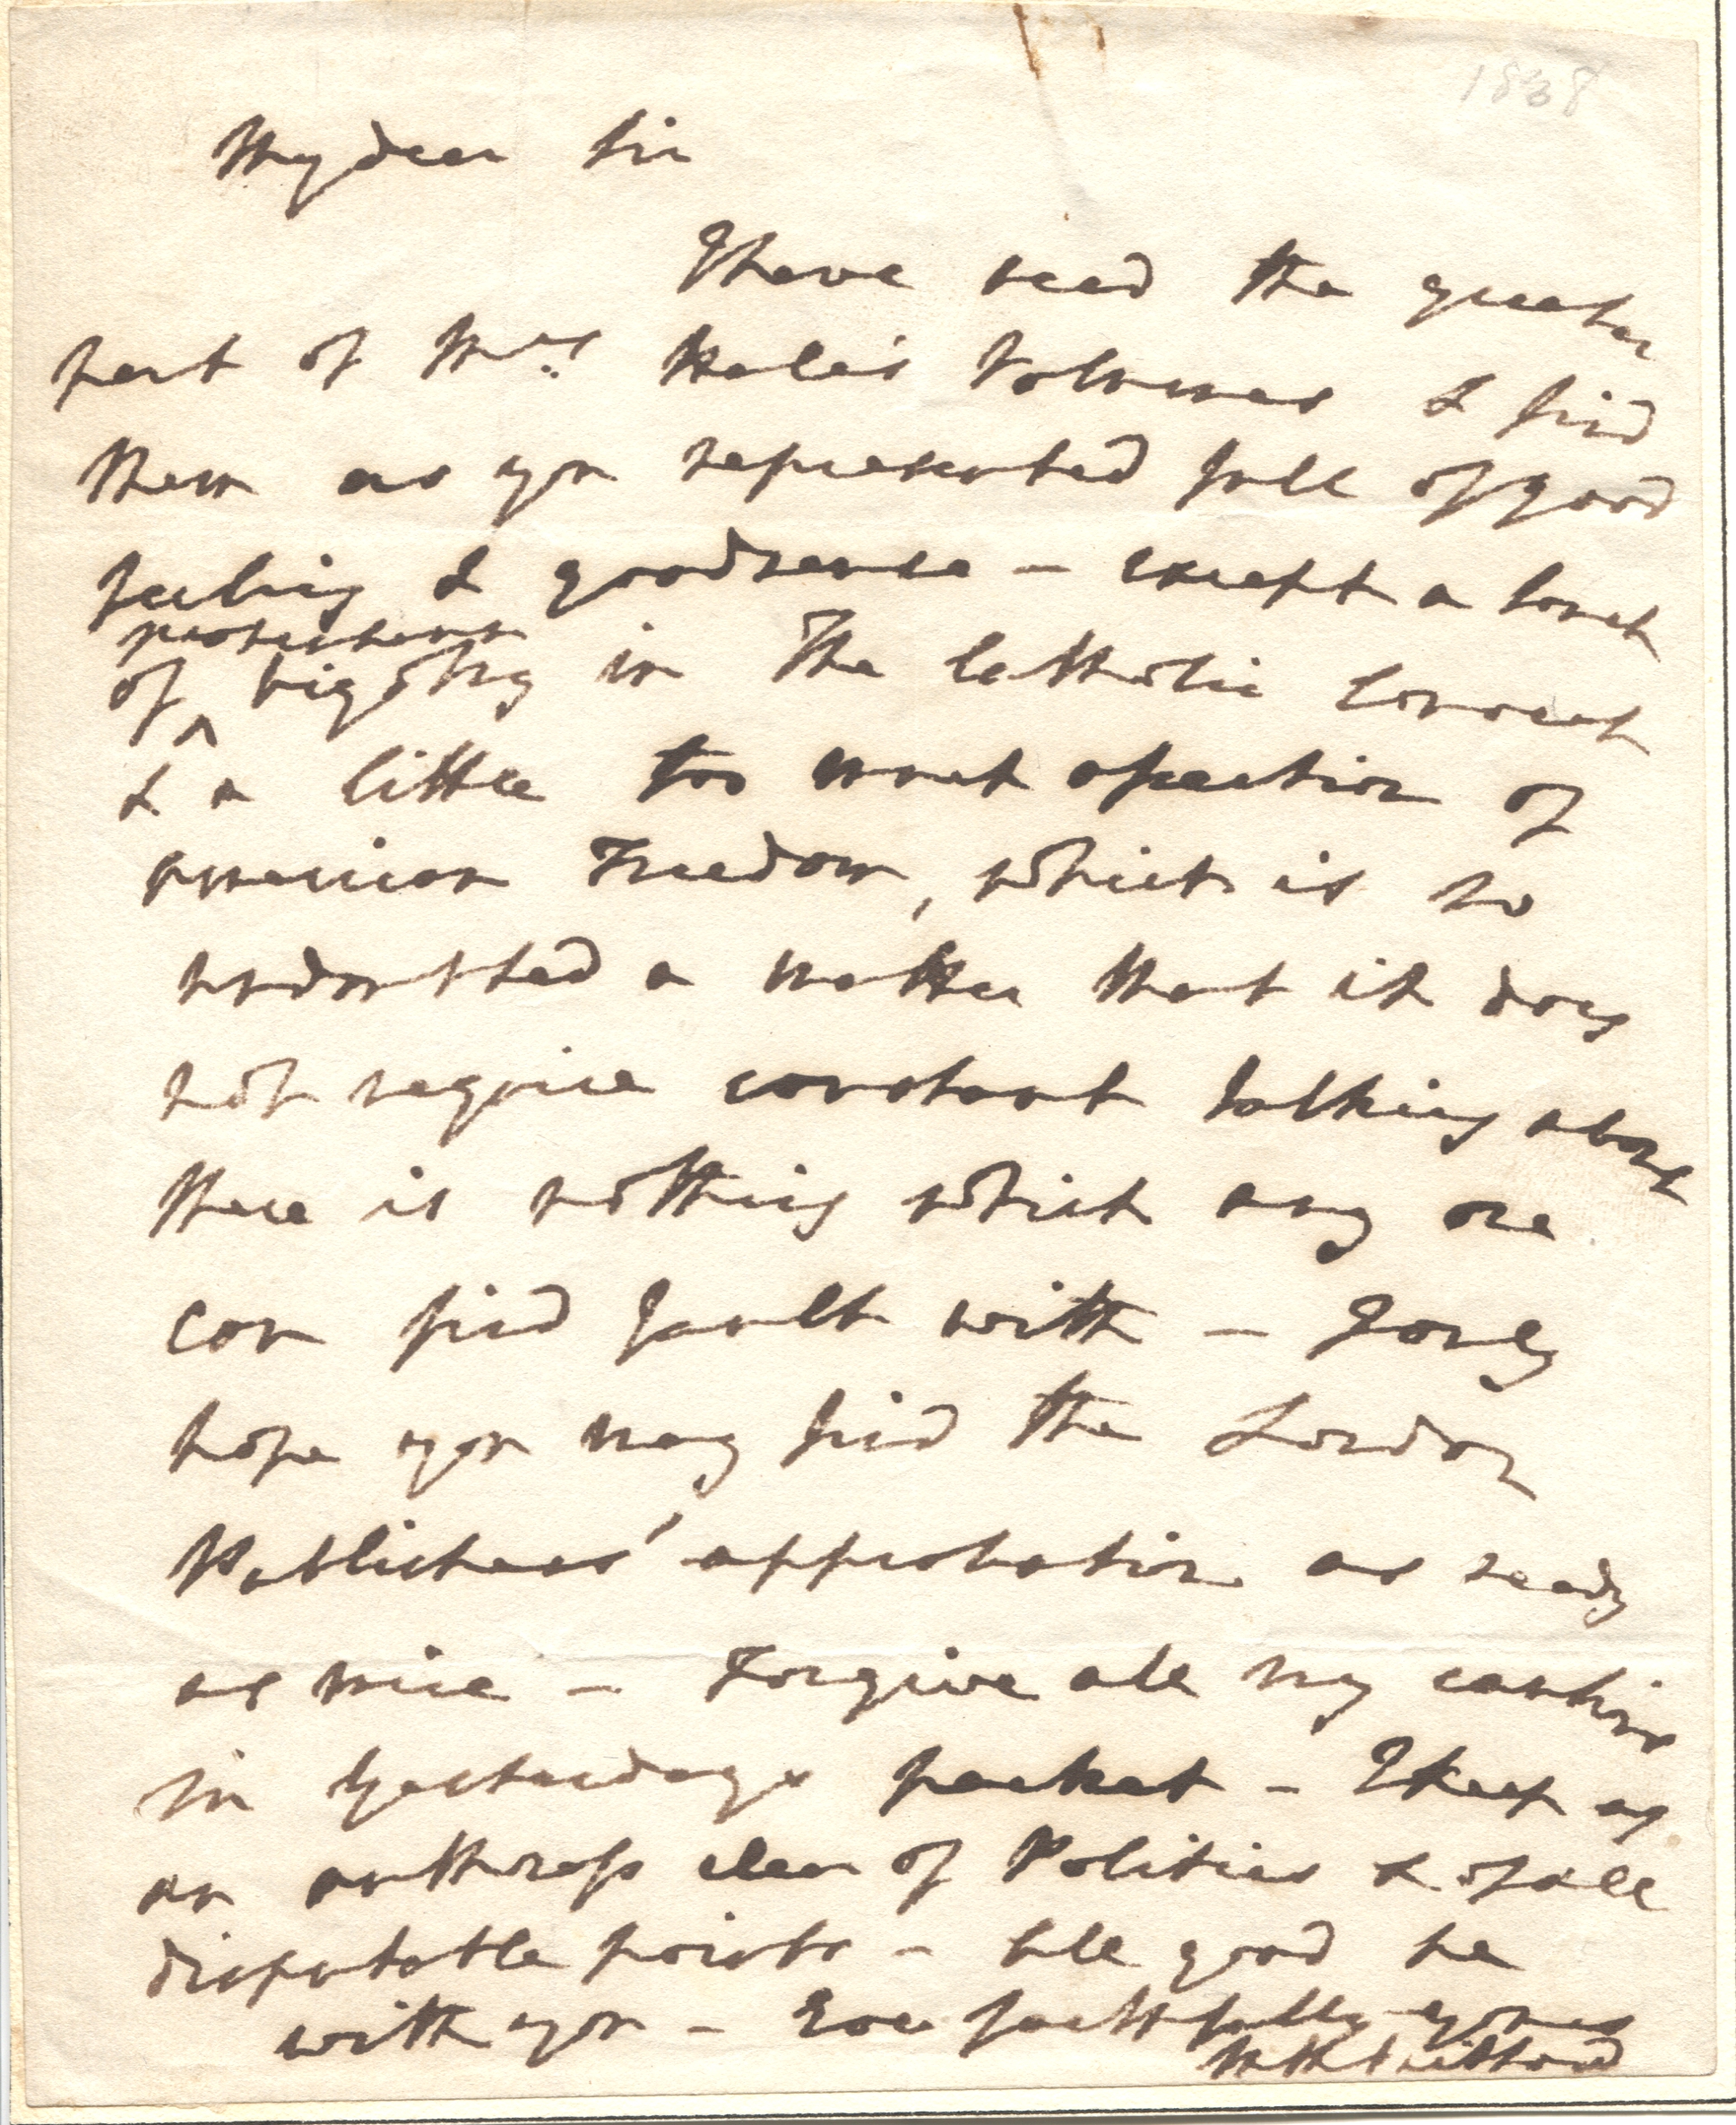 1838
My dear Sir
I have read the greater
part of Mrs. Hale's Volumes & find
them as you represented full of good
feeling & good sense — except a touch
protestant
of ^ bigotry in The Catholic Convent
& a little too much of
american Freedom, which is so
undoubted a matter that it does
not require constant talking about
there is nothing which any one
can find fault with — I only
hope you may find the London
Publishers' approbation as ready
as mine — Forgive all my cautions
in Yesterdays packet — I keep as
an authoress clear of Politics & of all
disputable points — All good be
with you — Ever faithfully yours
M R Mitford